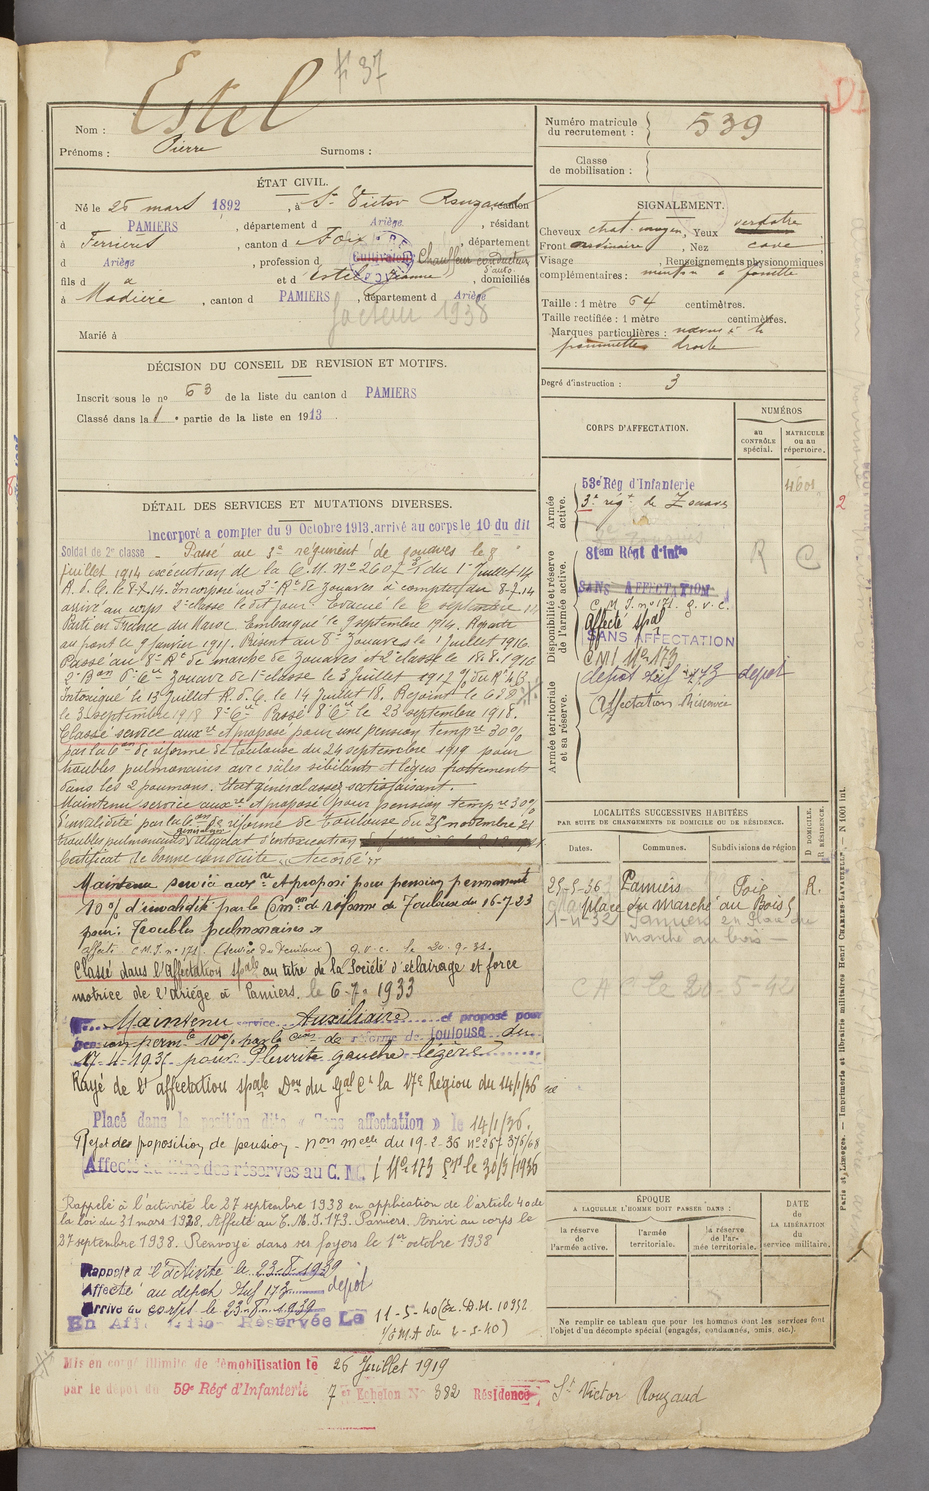 F 37
Nom : Estel
Prénoms : Pierre Surnoms :
ÉTAT CIVIL.
Né le 25 mars 1892, à St Victor Rouzaud, canton
d PAMIERS, département d Ariège, résidant
à Ferrières, canton d Foix, département
d Ariège, profession de Cultivateur Chauffeur conducteur d'auto
fils d et d Estel Jeanne, domiciliés
à Madière, canton d PAMIERS, département d Ariège
facteur 1938
Marié à
DÉCISION DU CONSEIL DE REVISION ET MOTIFS.
Inscrit sous le no 53 de la liste du canton d PAMIERS
Classé dans la 1e partie de la liste en 1913
DÉTAIL DES SERVICES ET MUTATIONS DIVERSES.
Incorporé à compter du 9 Octobre 1913. arrivé au corps le 10 du dit
Soldat de 2e classe - Passé au 3e régiment de zouaves le 8
juillet 1914 exécution de la C.M. no 2607 du 1er Juillet 14
A. d. C. le 8-7-14. Incorporé au 3e Rt de Zouaves à compter du 8-7-14
arrivé au corps 2e classe le dit jour. Evacué le 6 septembre 14
Parti en France du Maroc. Embarqué le 9 septembre 1914. Reparti
au front le 9 janvier 1915. Présent au 8e Zouaves le 1 juillet 1916.
Passé au 8e Rt de marche de Zouaves et 2e classe le 18.8.1916
2e Bon 6e Cie Zouave de 1e classe le 3 juillet 1917
Intoxiqué le 13 Juillet A. d. C. le 14 Juillet 18. Rejoint le
le 3 septembre 1918 8e Cie Passé 8e Cie le 23 septembre 1918.
Classé service auxre et proposé pour une pension tempre 30%
par la Con de réforme de Toulouse du 24 septembre 1919 pour
troubles pulmonaires avec râles sibilants et légers frottements
dans les 2 poumons. Etat général assez satisfaisant.
Maintenu service auxre et proposé pour pension tempre 30%
d'invalidité par la Con de réforme de Toulouse du 25 novembre 21
troubles pulmonaires généralisés reliquat d'intoxication
Certificat de bonne conduite "Accordé"
Maintenu service auxre et proposé pour pension permanente
10% d'invalidité par la Comon de réforme de Toulouse du 16-7-23
pour: Troubles pulmonaires »
affecté C.M.I. no 171 (service du Territoire) g.v.c. le 20.9.31.
Classé dans l'affectation spale au titre de la Société d'éclairage et force
motrice de l'Ariège à Pamiers. le 6-7-1933
Maintenu service Auxiliaire et proposé pour
pension permte 10% par la Cion de réforme de Toulouse du
17-4-1935 pour Pleurite gauche légère
Rayé de l'affectation spale Don du Gal Ct la 17e Région du 14/1/36
Placé dans la position dite « Sans affectation » le 14/1/36.
Rejet des proposition de pension - non melle du 19-2-36 no 267-376/68
Affecté au titre des réserves au C.M.I No 173 le 30/3/1936
Rappelé à l'activité le 27 septembre 1938 en application de l'article 40 de
la loi du 31 mars 1928. Affecté au C.M.I. 173 Pamiers. Arrivé au corps le
27 septembre 1938. Renvoyé dans ses foyers le 1er octobre 1938
Rappelé à l'activité le 23-8-1939
Affecté au dépôt Inf 173 dépôt
Arrivé au corps le 23-8-1939
En Affectation Réservée Le 11-5-40 (Ex. D.M. 10952
1/EMA du 2-5-40)
Mis en congé illimité de démobilisation le 26 Juillet 1919
par le dépôt du 59e Rég d'Infanterie 7e Echelon No 382 Résidence St Victor Rouzaud
Numéro matricule du recrutement : 539
Classe de mobilisation :
SIGNALEMENT.
Cheveux chat. moyen, Yeux verdâtre
Front ordinaire, Nez cave
Visage, Renseignements physionomiques
complémentaires : menton à fossette
Taille : 1 mètre 64 centimètres.
Taille rectifiée : 1 mètre centimètres.
Marques particulières : nævus à la
pommette droite
Degré d'instruction : 3
CORPS D'AFFECTATION.
NUMÉROS
au CONTRÔLE spécial.
MATRICULE ou au répertoire.
Armée active.
53e Rég d'Infanterie 4601
3e régt de Zouaves
Disponibilité et réserve de l'armée active.
81em Régt d'Infie R C
SANS AFFECTATION
C.M.I. no 171. g.v.c.
Affecté spal
SANS AFFECTATION
CMI No 173
Armée territoriale et sa réserve.
dépôt Inf 173 dépôt
Affectation Réservée
LOCALITÉS SUCCESSIVES HABITÉES
PAR SUITE DE CHANGEMENTS DE DOMICILE OU DE RÉSIDENCE.
Dates. Communes. Subdivisions de région
D DOMICILE. R RÉSIDENCE.
25-5-36 Pamiers Foix R.
place du Marché au Bois
1-11-32 Pamiers 2 Place du
Marché au bois
CAC le 20-5-42
ÉPOQUE
A LAQUELLE L'HOMME DOIT PASSER DANS :
la réserve de l'armée active.
l'armée territoriale.
la réserve de l'armée territoriale.
DATE de LA LIBÉRATION du service militaire.
Ne remplir ce tableau que pour les hommes dont les services font
l'objet d'un décompte spécial (engagés, condamnés, omis, etc.).
Paris et Limoges. — Imprimerie et librairie militaires Henri CHARLES-LAVAUZELLE. — N 1001 int.
VI
2